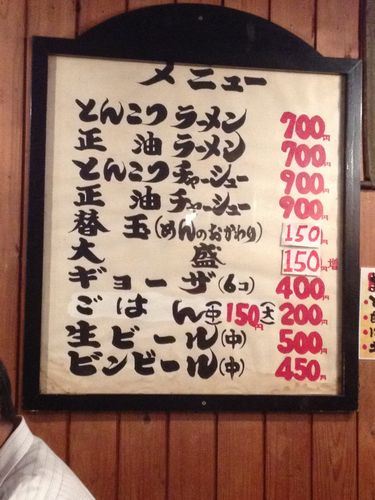 メニュー
とんこつラーメン 700円
正油ラーメン 700円
とんこつチャーシュー 900円
正油チャーシュー 900円
替玉(めんのおかわり) 150円
大盛 150円増
ギョーザ(6コ) 400円
ごはん 中150円 大200円
生ビール(中) 500円
ビンビール(中) 450円